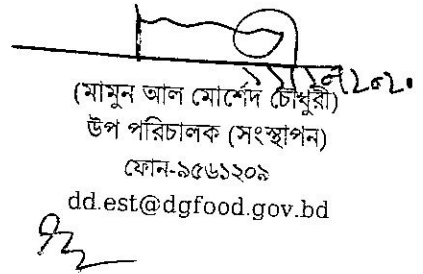 (মামুন আল মোর্শেদ চৌধুরী)
উপ পরিচালক (সংস্থাপন)
ফোন-৯৫৬১২০৯
dd.est@dgfood.gov.bd